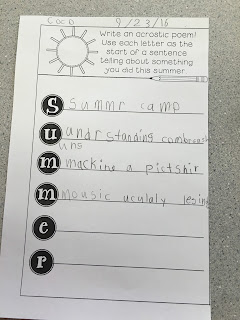 Coco 9/23/16
Write an acrostic poem!
Use each letter as the
start of a sentence
telling about something
you did this summer.
Summr camp
uandrstanding
uns
mmacking a pictshir
mmousic uculaly
e
r